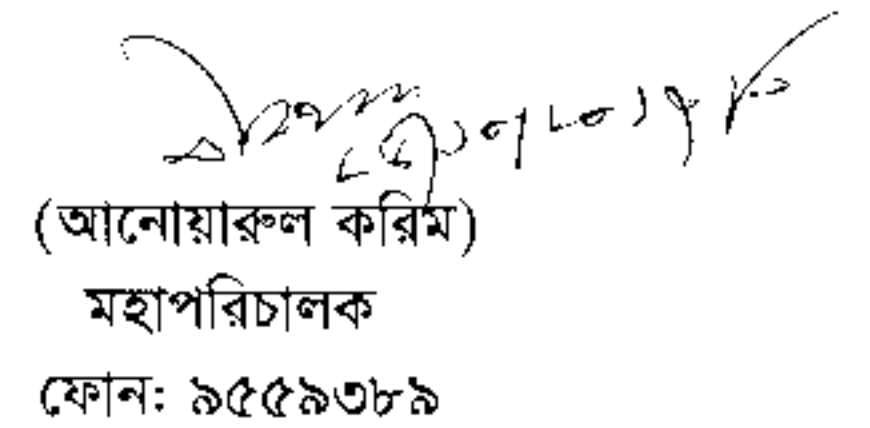 (আনোয়ারুল করিম)
মহাপরিচালক
ফোন: ৯৫৫৯৩৮৯